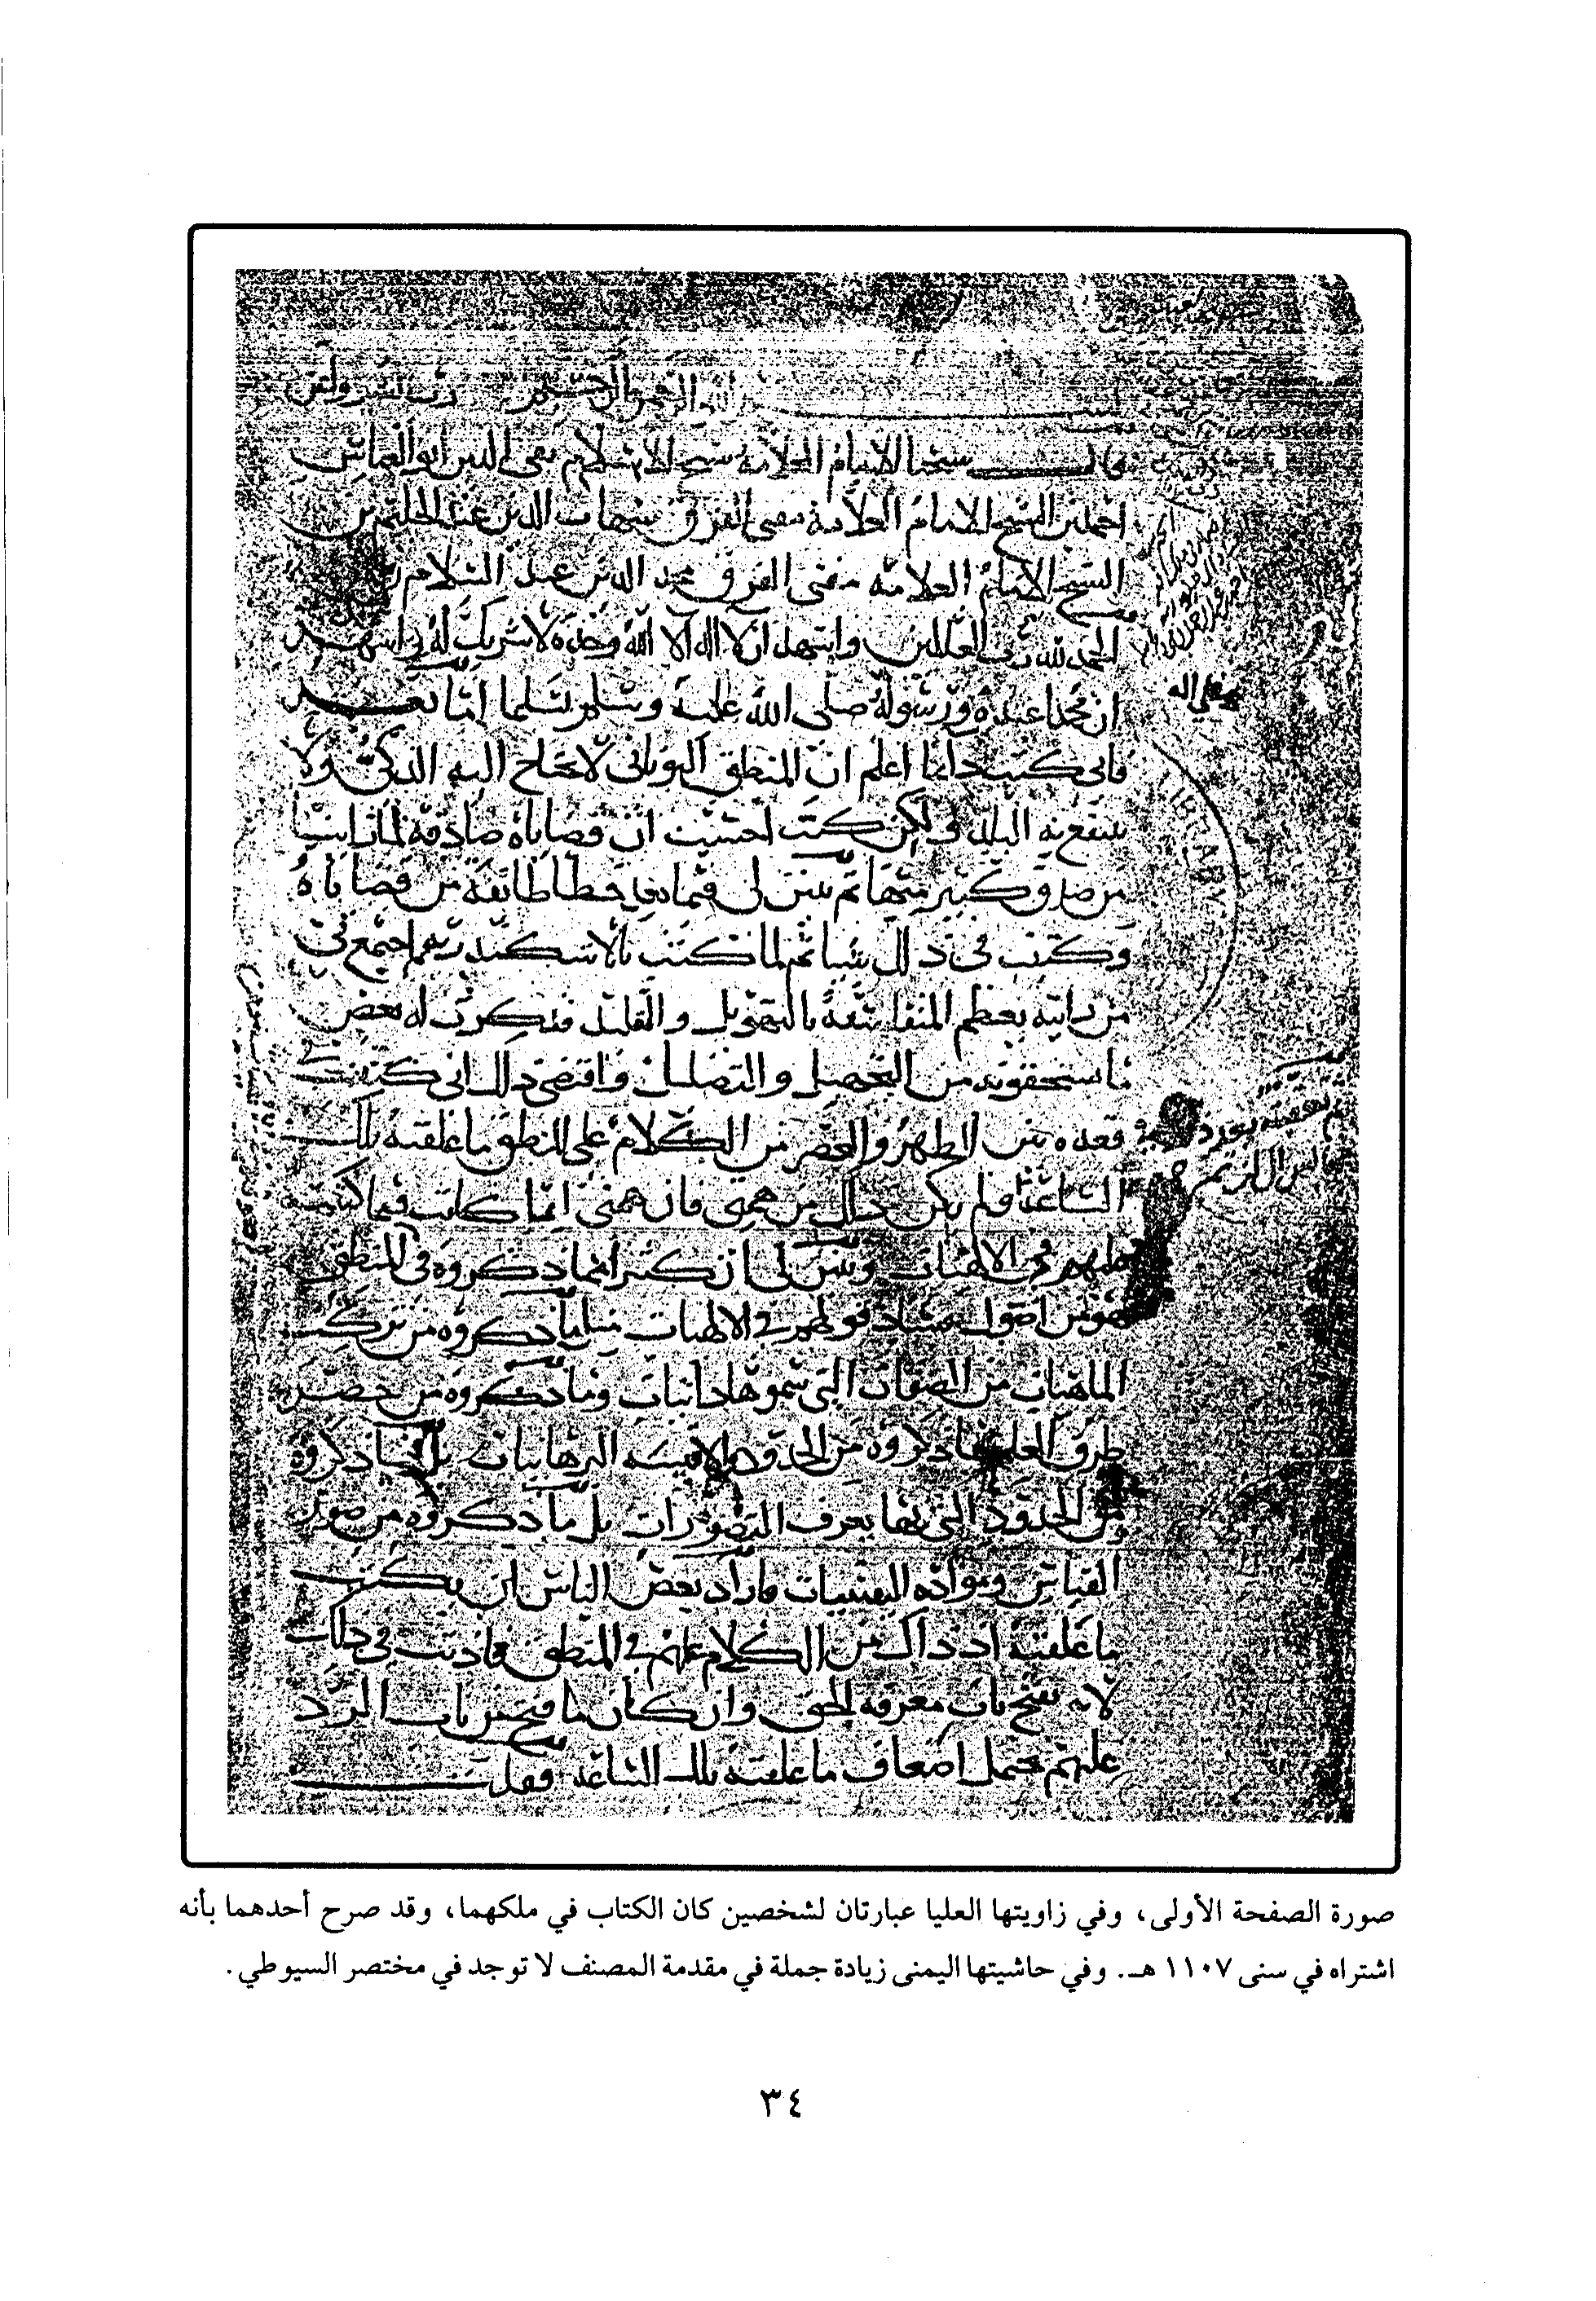 بسم الله الرحمن الرحيم رب يسر واعن
قال شيخنا الامام العلامة شيخ الاسلام تقي الدين ابو العباس
احمد بن الشيخ الامام العلامة مفتي الفرق شهاب الدين عبد الحليم بن
الشيخ الامام العلامه مفتي الفرق مجد الدين عبد السلام
الحمد لله رب العالمين واشهد ان لا اله الا الله وحده لا شريك له واشهد
ان محمدا عبده ورسوله صلى الله عليه وسلم تسليما اما بعد
فاني كنت دايما اعلم ان المنطق اليوناني لا يحتاج اليه الذكي ولا
ينتفع به البليد ولكن كنت احسب ان قضاياه صادقه لما راينا
من صدق كثير منها ثم تبين لي فيما بعد خطا طائفة من قضاياه
وكتبت في ذلك شيا ثم لما كنت بالاسكندريه اجتمع بي
من رايته يعظم المتفلسفة بالتهويل والتقليد فذكرت له بعض
ما يستحقونه من التجهيل والتضليل واقتضى ذلك اني كتبت
في قعده بين الظهر والعصر من الكلام على المنطق ما علقته تلك
الساعة ولم يكن ذلك من همتي فان همتي انما كانت فيما كتبته
عليهم في الالهيات وتبين لي ان كثيرا مما ذكروه في المنطق
هو من اصول فساد قولهم في الالهيات مثل ما ذكروه من تركيب
الماهيات من الصفات التي سموها ذاتيات وما ذكروه من حصر
طرق العلم فيما ذكروه من الحدود والاقيسه البرهانيات بل فيما ذكروه
من الحدود التي بها يعرف التصورات بل ما ذكروه من صور
القياس ومواده اليقينيات فاراد بعض الناس ان يكتب
ما علقته اذ ذاك من الكلام عليهم في المنطق فاذنت في ذلك
لانه يفتح باب معرفه الحق وان كان ما فتح من باب الرد
عليهم يحتمل اضعاف ما علقته تلك الساعة فقلت
صورة الصفحة الأولى، وفي زاويتها العليا عبارتان لشخصين كان الكتاب في ملكهما، وقد صرح أحدهما بأنه
اشتراه في سنى ١١٠٧ هـ. وفي حاشيتها اليمنى زيادة جملة في مقدمة المصنف لا توجد في مختصر السيوطي.
٣٤